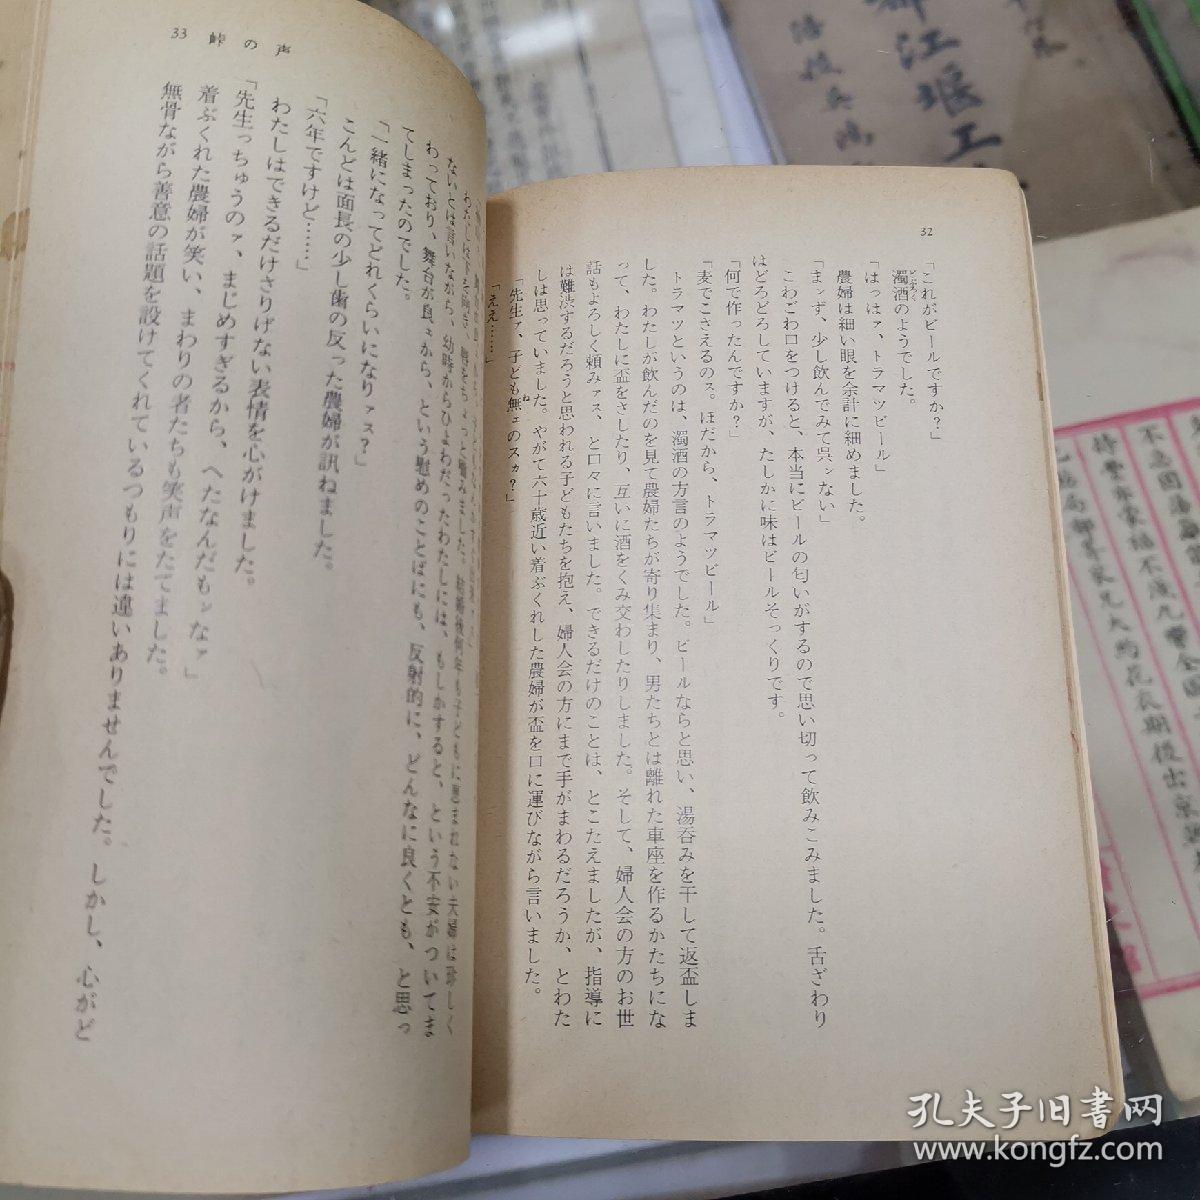 32
「これがビールですか？」
濁酒のようでした。
「はっはァ、トラマツビール」
農婦は細い眼を余計に細めました。
「まッず、少し飲んでみて呉ッない」
こわごわ口をつけると、本当にビールの匂いがするので思い切って飲みこみました。舌ざわり
はどろどろしていますが、たしかに味はビールそっくりです。
「何で作ったんですか？」
「麦でこさえるのス。ほだから、トラマツビール」
トラマツというのは、濁酒の方言のようでした。ビールならと思い、湯呑みを干して返盃しま
した。わたしが飲んだのを見て農婦たちが寄り集まり、男たちとは離れた車座を作るかたちにな
って、わたしに盃をさしたり、互いに酒をくみ交わしたりしました。そして、婦人会の方のお世
話もよろしく頼みァス、と口々に言いました。できるだけのことは、とこたえましたが、指導に
は難渋するだろうと思われる子どもたちを抱え、婦人会の方にまで手がまわるだろうか、とわた
しは思っていました。やがて六十歳近い着ぶくれした農婦が盃を口に運びながら言いました。
「先生ァ、子ども無ェのスカ？」
「ええ……」
33 峠の声
わたしは下を向き、唇をちょっと噛みました。結婚後何年も子どもに恵まれない夫婦は珍しく
ないとは言いながら、幼時からひよわだったわたしには、もしかすると、という不安がついてま
わっており、舞台が良ェから、という慰めのことばにも、反射的に、どんなに良くとも、と思っ
てしまったのでした。
「一緒になってどれくらいになりァス？」
こんどは面長の少し歯の反った農婦が訊ねました。
「六年ですけど……」
わたしはできるだけさりげない表情を心がけました。
「先生っちゅうのァ、まじめすぎるから、へたなんだもンなァ」
着ぶくれた農婦が笑い、まわりの者たちも笑声をたてました。
無骨ながら善意の話題を設けてくれているつもりには違いありませんでした。しかし、心がど
都江堰工
孔夫子旧书网
www.kongfz.com